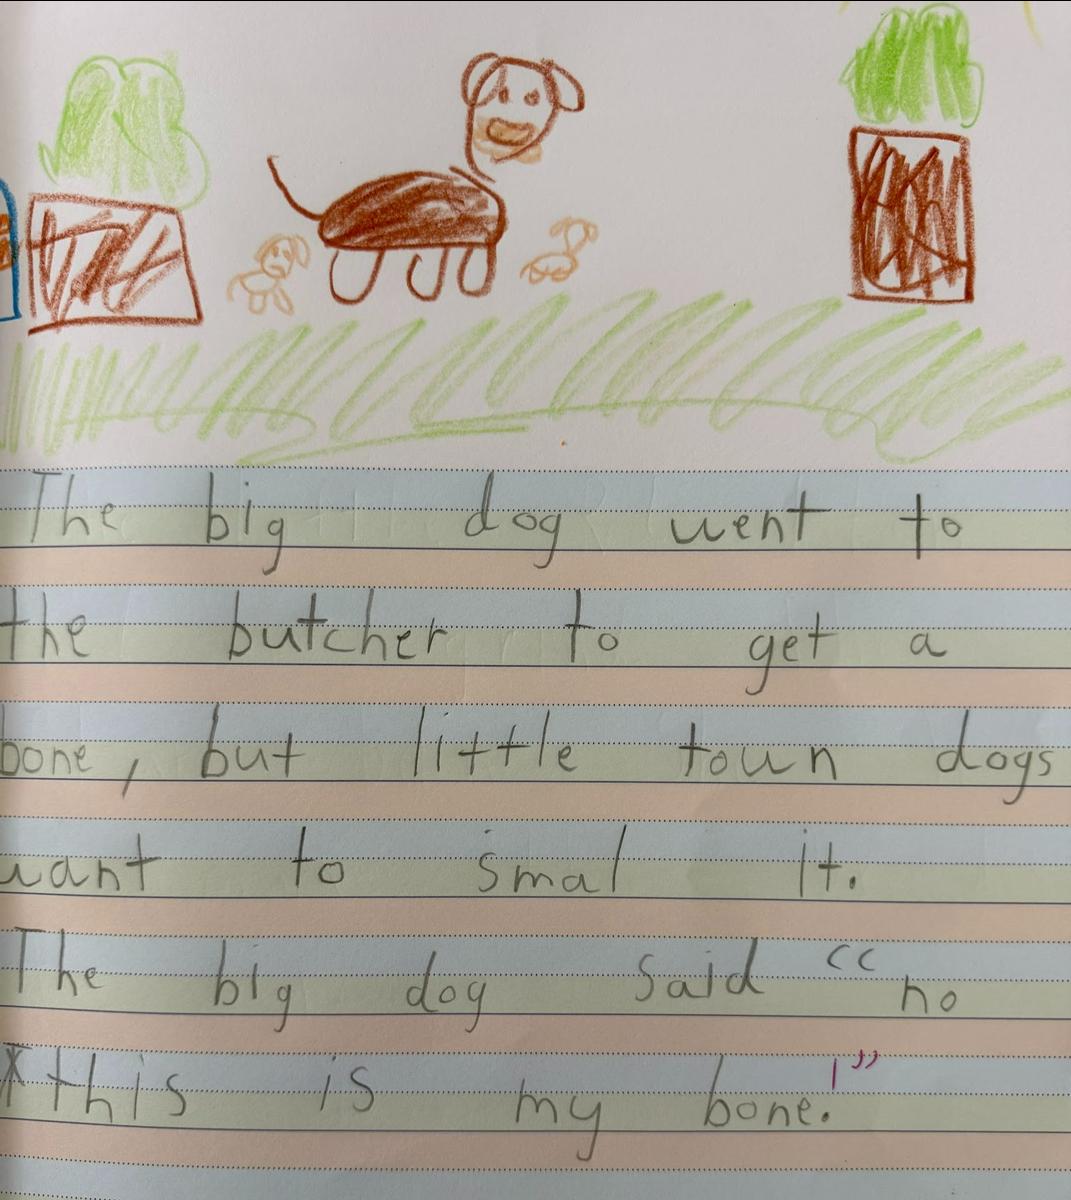 The big dog went to
the butcher to get a
bone, but little town dogs
want to smal it.
The big dog said “no
*this is my bone.!”